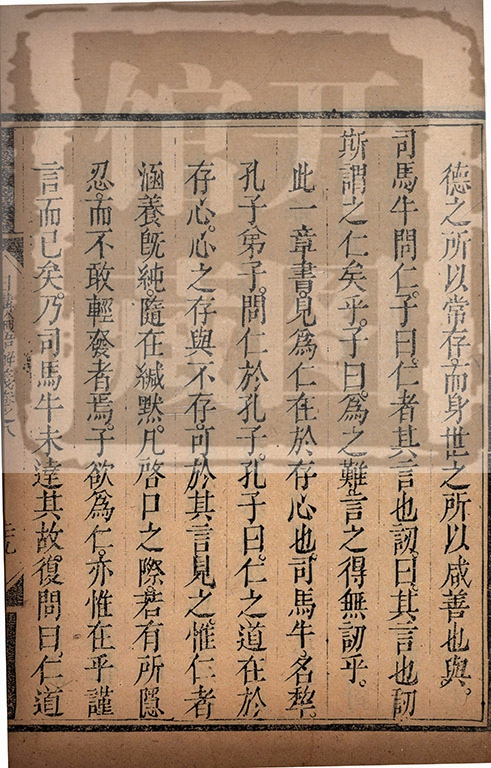 德之所以常存。而身世之所以咸善也與。
司馬牛問仁。子曰。仁者其言也訒。曰。其言也訒
斯謂之仁矣乎。子曰。為之難。言之得無訒乎。
此一章書。見為仁在於存心也。司馬牛。名犂。
孔子弟子。問仁於孔子。孔子曰。仁之道在於
存心。心之存與不存。可於其言見之。惟仁者
涵養旣純。隨在緘默。凡啓口之際。若有所隱
忍。而不敢輕發者焉。子欲為仁。亦惟在乎謹
言而已矣。乃司馬牛未達其故。復問曰。仁道